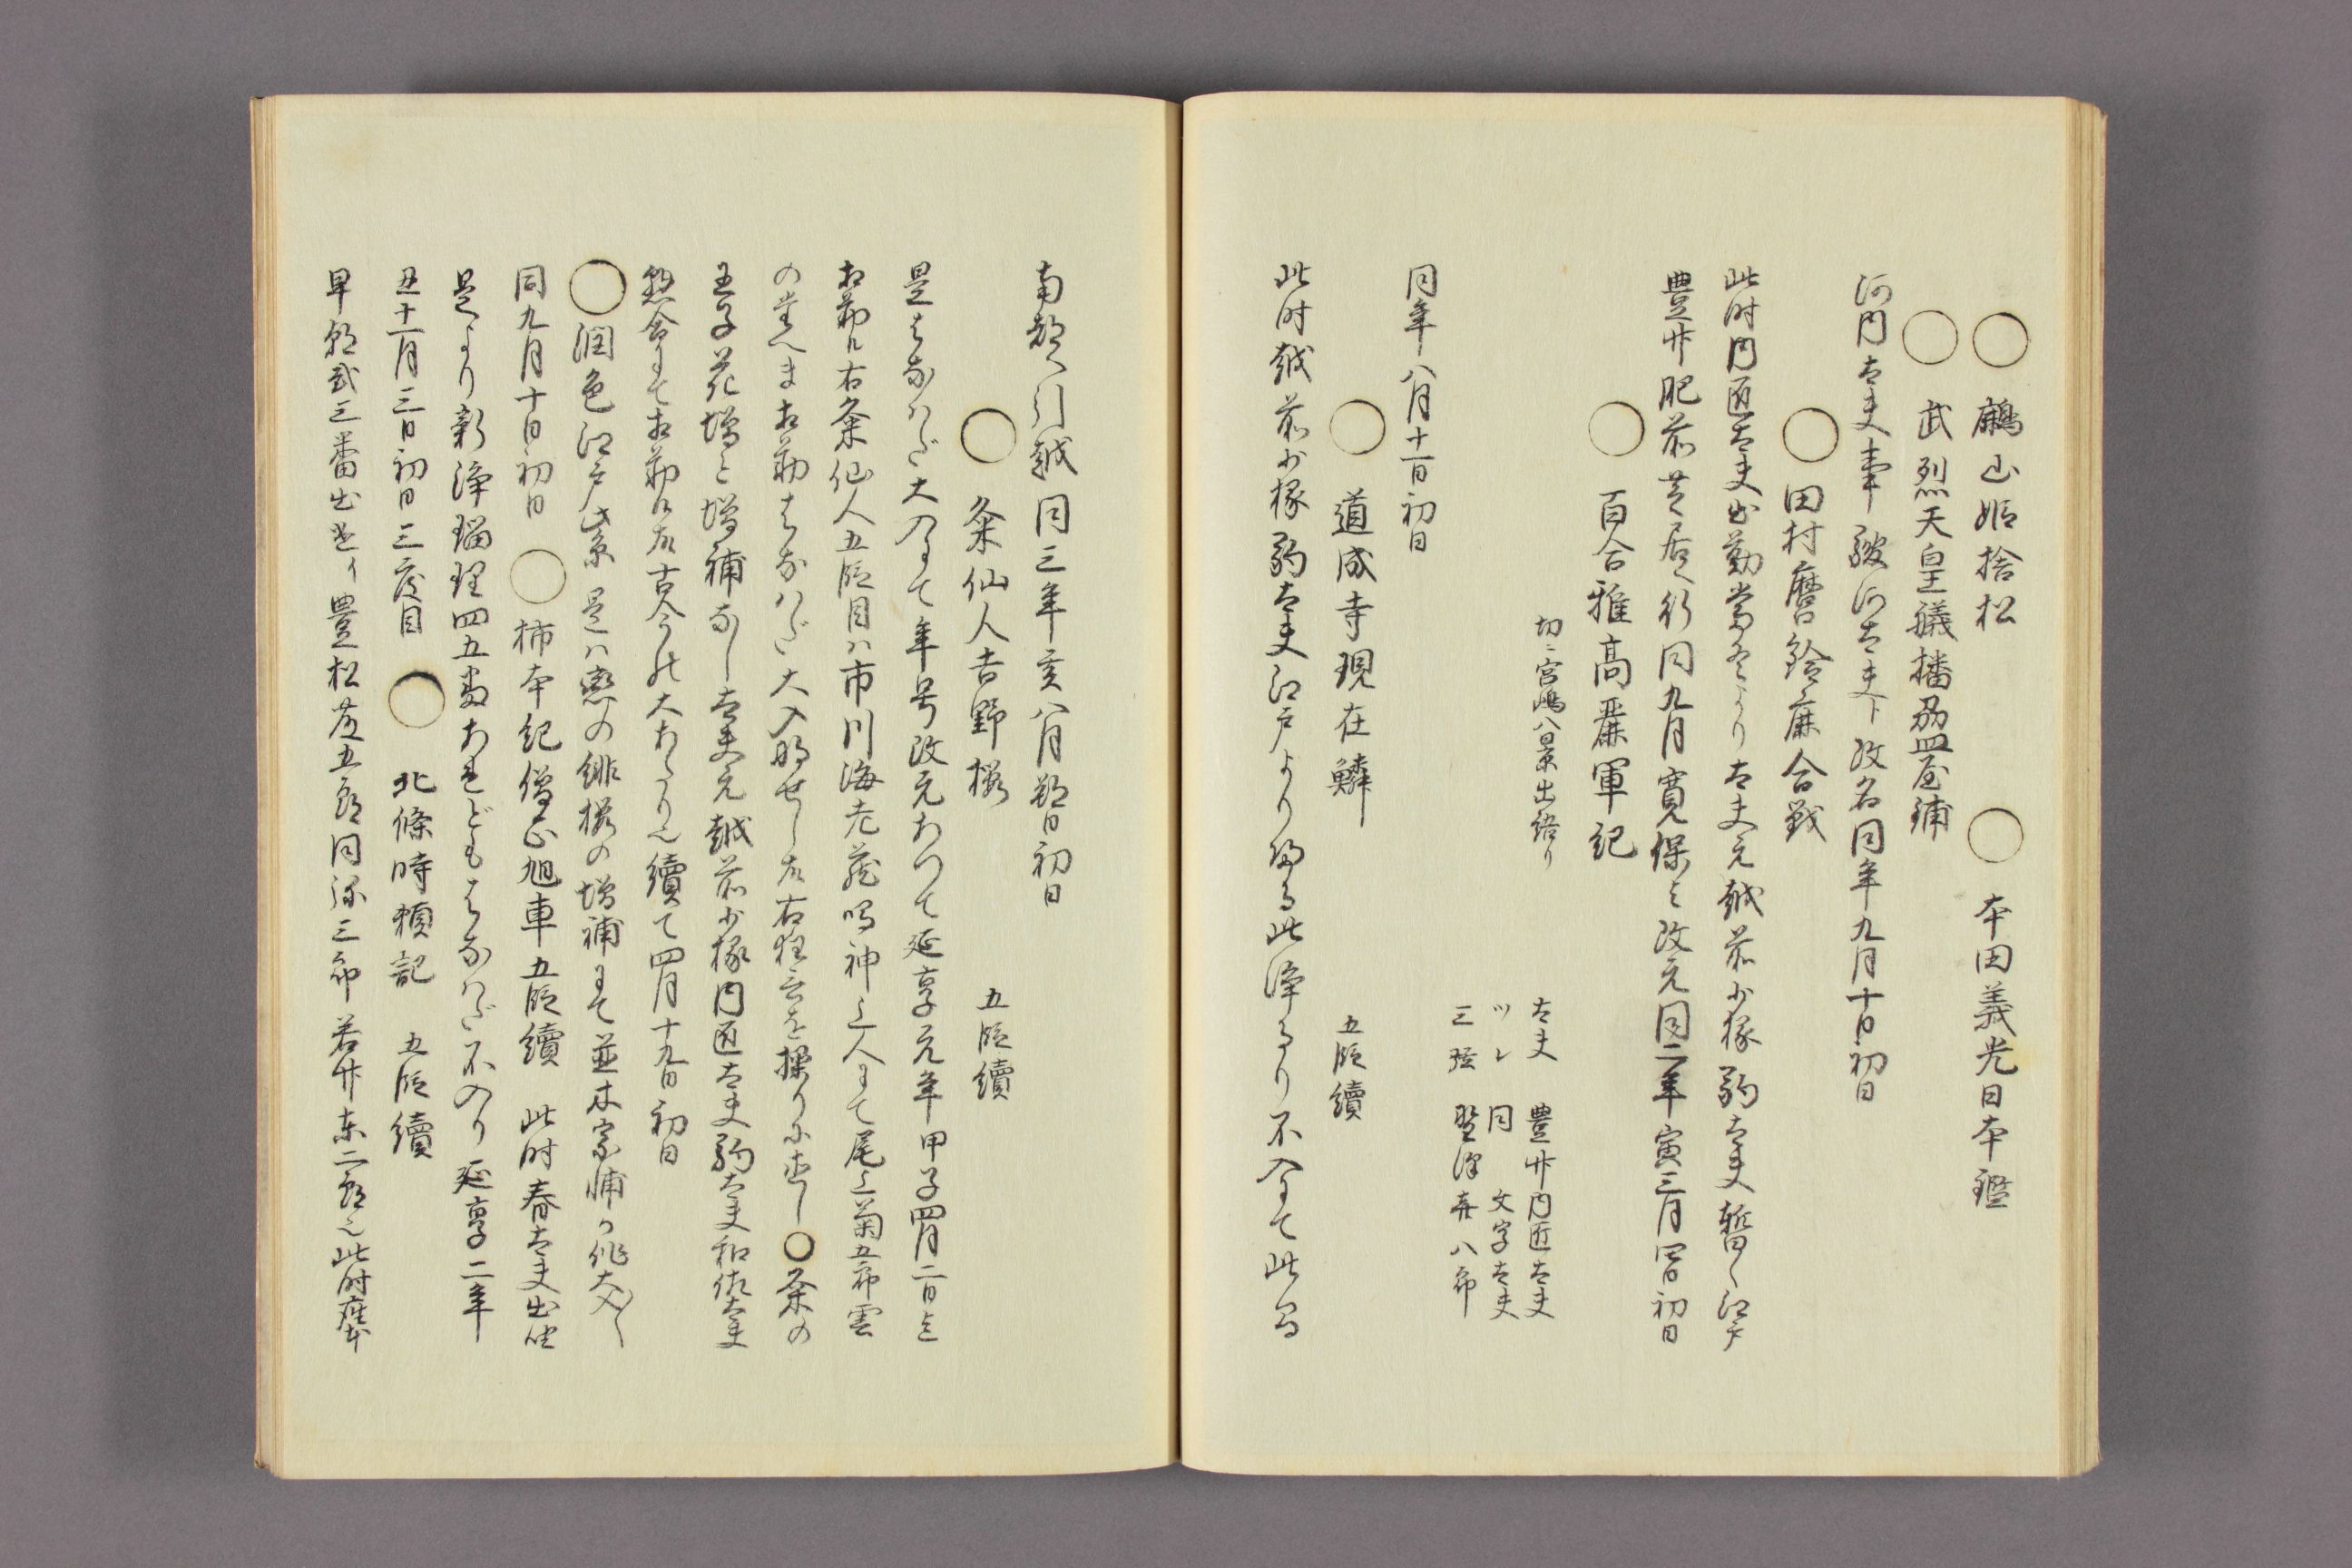 ○ 鶊山姫捨松 ○ 本田義光日本鑑
○ 武烈天皇艤
河内太夫事 駿河太夫ト改名同年九月十日初日
○ 田村麿鈴鹿合戦
此時内匠太夫出勤 太夫元越前少掾 駒太夫暫く江戸
豊竹肥前芝居へ行 同九月寛保と改元 同二年寅三月四日初日
○ 百合雅高麗軍記
切ニ 宮嶋八景出語り 太夫 豊竹内匠太夫
ツレ 同 文字太夫
三弦 野澤喜八郎
同年八月十一日初日
○ 道成寺現在鱗 五段續
此時越前少掾駒太夫江戸より帰る此浄るり不入にて此
南都へ引越 同三年亥八月朔日初日
○ 粂仙人吉野櫻 五段續
是もなかハだ大入にて年号改元あつて延享元年甲子四月二日
相勤ル右粂仙人五段目ハ市川海老蔵鳴神上人にて尾上菊五郎雲
のたへま相勤 大入 右狂言を操りに ○粂の
王子花増と増補なし 太夫元越前少掾内匠太夫駒太夫和佐太夫
惣合にて相勤 古今の大あたり也 續て四月十九日初日
○ 潤色江戸紫 是ハ戀の緋櫻の増補にて並木宗輔の作大入
同九月十日初日 ○ 柿本紀僧正旭車 五段續 此時春太夫出座
是より新浄瑠理四五あれども 不入り 延享二年
丑十一月三日初日三度目 ○ 北條時頼記 五段續
早 弐三番出 豊松藤五郎 同弥三郎 若竹東二郎也 此時